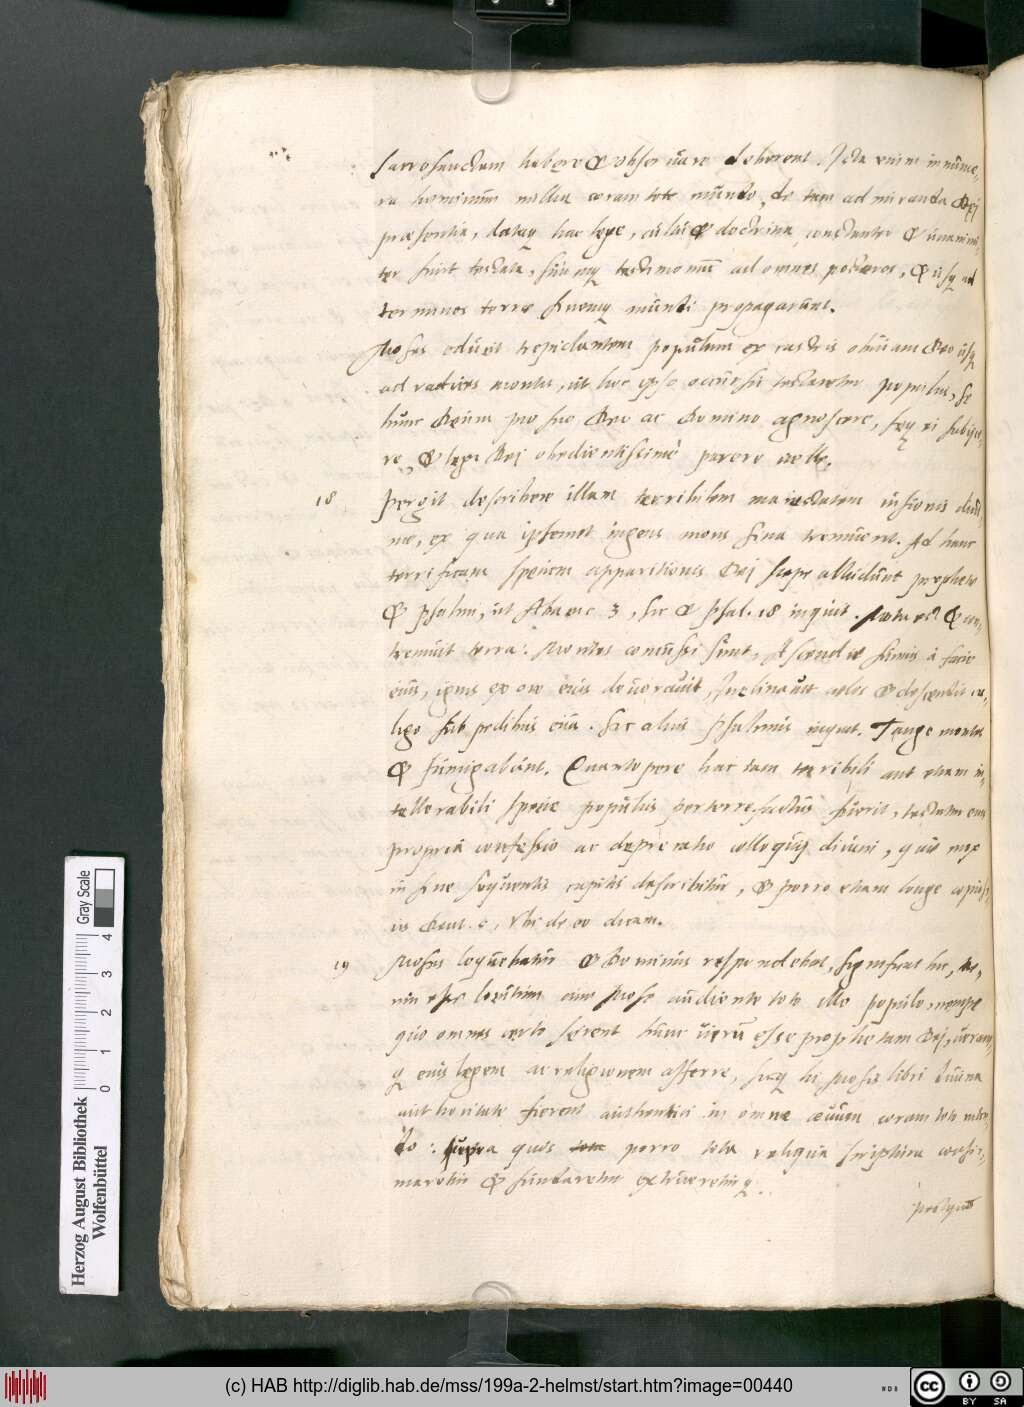 sacrosanctam habere & observare deberent. Ista enim innume-
ra hominum millia coram toto mundo, de tam admiranda Dej
præsentia, dataq hac lege, cultu & doctrina, constanter & unanimi-
ter sunt testata, suumq testimoniū ad omnes posteros, & usq ad
terminos terræ finemq mundi propagarunt.
Moses eduxit trepidantem populum ex castris obviam Deo usq
ad radices montis, ut hoc ipso occursu testaretur populus, se
hunc Deum pro suo Deo ac Domino agnoscere, seq ei subijce-
re, & legi Dej obedientissimè parere velle.
18 Pergit describere illam terribilem maiestatem visionis divi
næ, ex qua ipsemet ingens mons Sina tremuerit. Ad hanc
terrificam speciem apparitionis Dej sæpe alludunt prophetæ
& Psalmi, ut Abacuc 3, sic & Psal. 18 inquit. Mota est & con-
tremuit terra: Montes concussi sunt, Ascendit fumus à facie
eius, ignis ex ore eius devoravit, Inclinavit cælos & descendit ca-
ligo sub pedibus eius. Sic alius Psalmus inquit. Tange montes
& fumigabunt. Quantopere hac tam terribili aut etiam in-
tollerabili specie populus perterrefactus fuerit, testatur eius
propria confessio ac deprecatio colloquij divini, quæ mox
in fine sequentis capitis describitur, & porro etiam longe copiosi-
us Deut. 5, Vbi de eo dicam.
19 Moses loquebatur & Dominus respondebat, significat hic,
eum Mose audiente toto illo populo, nempe
quo omnes certo scirent hunc verū esse prophetam Dej, veram-
q eius legem ac religionem afferre, sicq hi Mosis libri divina
authoritate fierent authentici in omne ævum coram toto mun-
do: supra quos tota porro tota reliqua scriptura confir-
maretur & fundaretur extruereturq.